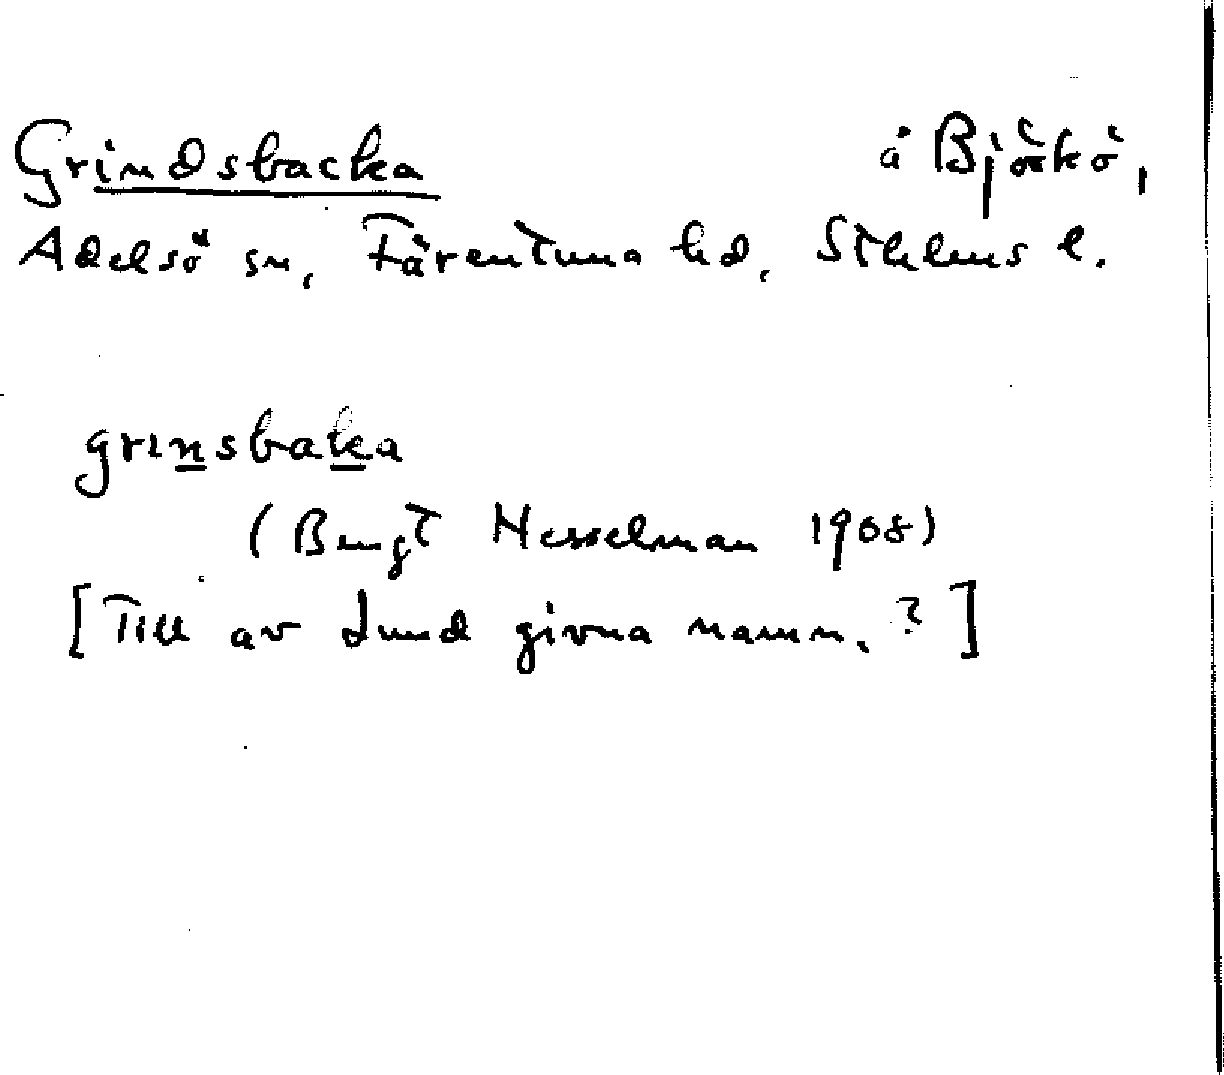 Grindsbacka å Björkö,
Adelsö sn, Färentuna hd, Sthlms l.
grinsbaka
(Bengt Hesselman 1908)
[Till av Lund givna namn.?]